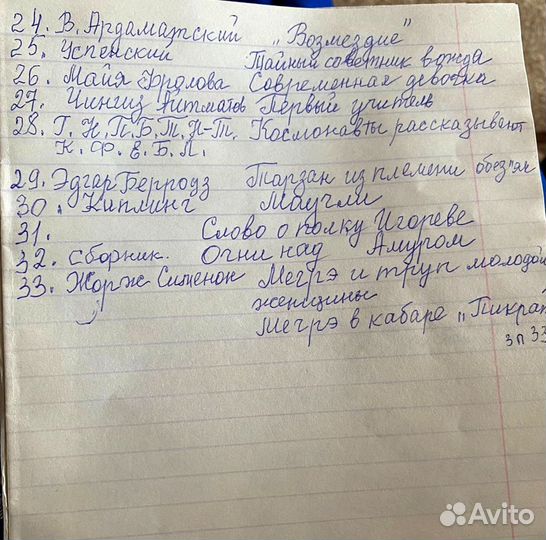 24. В. Ардаматский „Возмездие"
25. Успенский Тайный советник вождя
26. Майя Фролова Современная девочка
27. Чингиз Айтматов Первый учитель
28. Г. Н. П. Б. Т. Н-Т. Космонавты рассказывают
К. Ф. Е. Б. Л.
29. Эдгар Берроуз Тарзан из племени обезьян
30. Киплинг Маугли
31. Слово о полку Игореве
32. сборник. Огни над Амуром
33. Жорж Сименон Мегрэ и труп молодой
женщины
Мегрэ в кабаре „Пикрат
зп 33
Avito